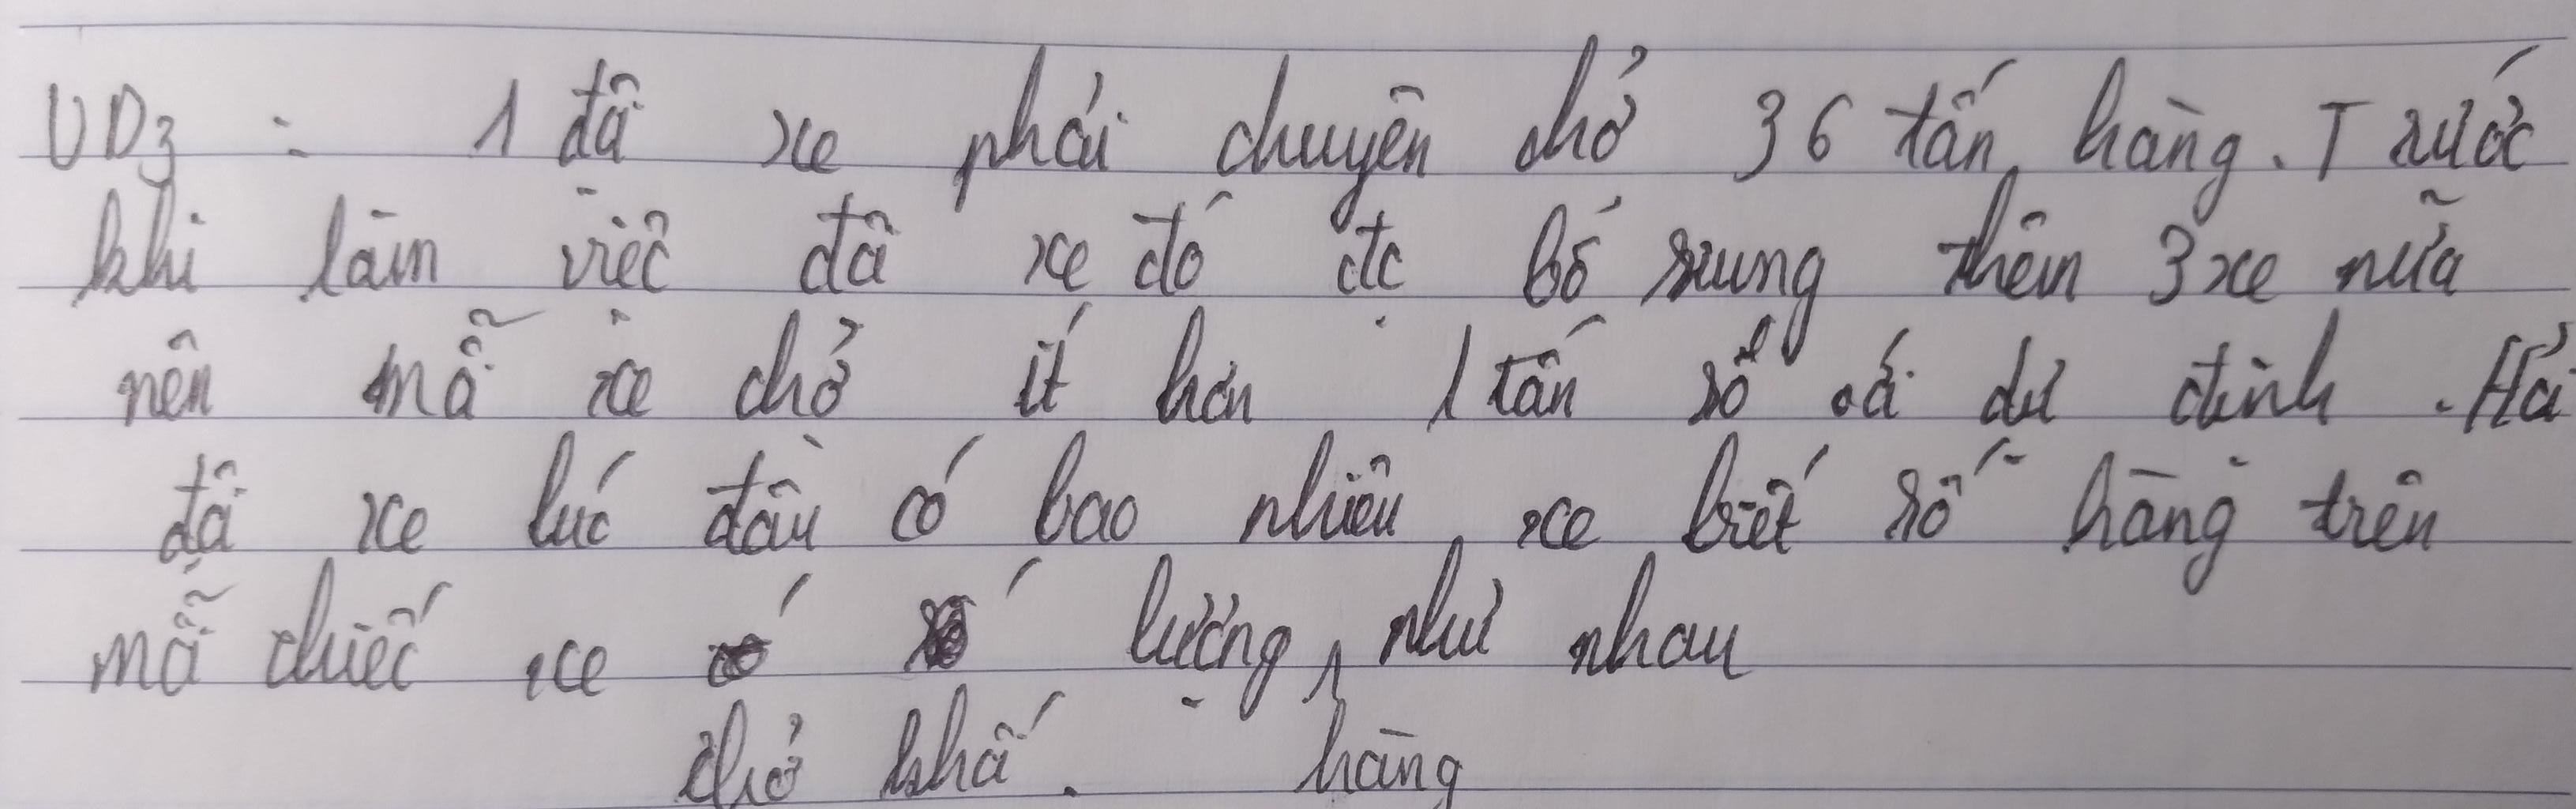 VD3 : 1 đội xe phải chuyên chở 36 tấn hàng. Trước
khi làm việc đội xe đó đc bổ sung thêm 3 xe nữa
nên mỗi xe chở ít hơn 1 tấn so với dự định. Hỏi
đội xe lúc đầu có bao nhiêu xe biết số hàng trên
mỗi chiếc xe chở khối lượng hàng như nhau